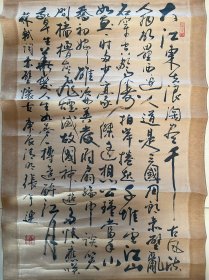 大江東去浪淘盡千古風流
人物故壘西邊人道是三國周郎赤壁亂
石穿空驚濤拍岸捲起千堆雪江山
如畫一時多少豪傑遙想公瑾當年小
喬初嫁了雄姿英發羽扇綸巾談笑
間檣櫓灰飛煙滅故國神遊多情應笑
我早生華髮人生如夢一尊還酹江月
蘇軾詞赤壁懷古庚辰清明張